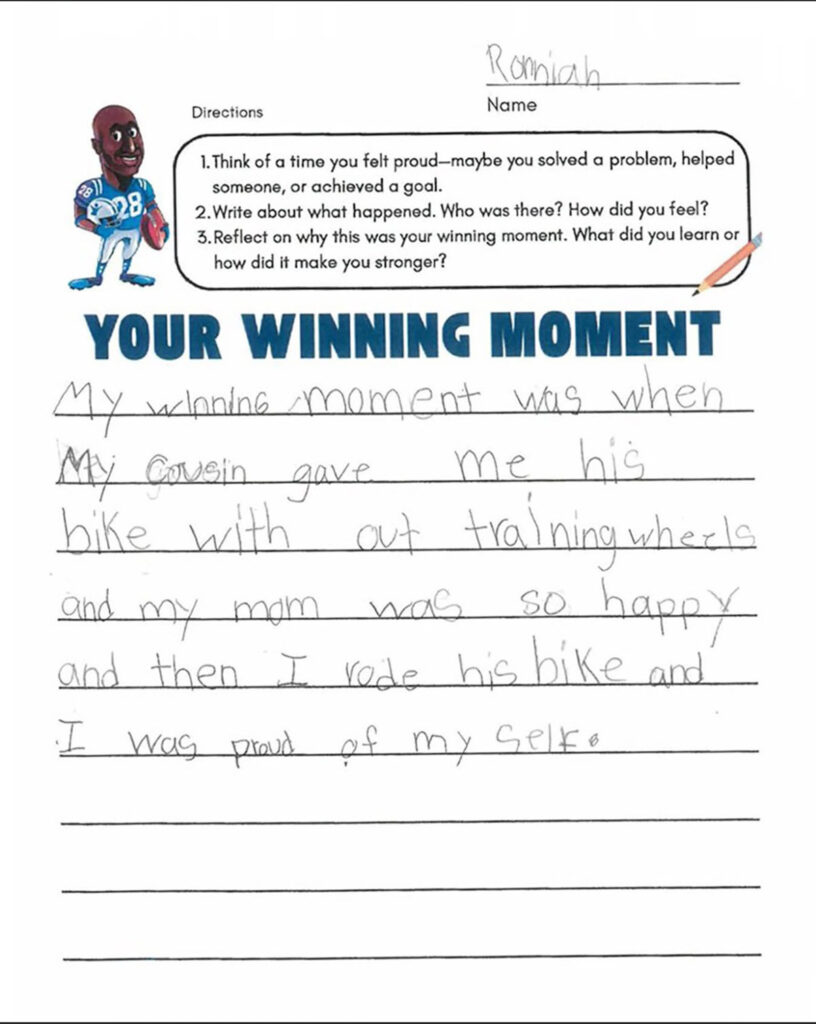 Romiah
Name
Directions
1.Think of a time you felt proud—maybe you solved a problem, helped
someone, or achieved a goal.
2.Write about what happened. Who was there? How did you feel?
3.Reflect on why this was your winning moment. What did you learn or
how did it make you stronger?
28
28
YOUR WINNING MOMENT
My winning moment was when
My cousin gave me his
bike with out training wheels
and my mom was so happy
and then I rode his bike and
I was proud of my self.